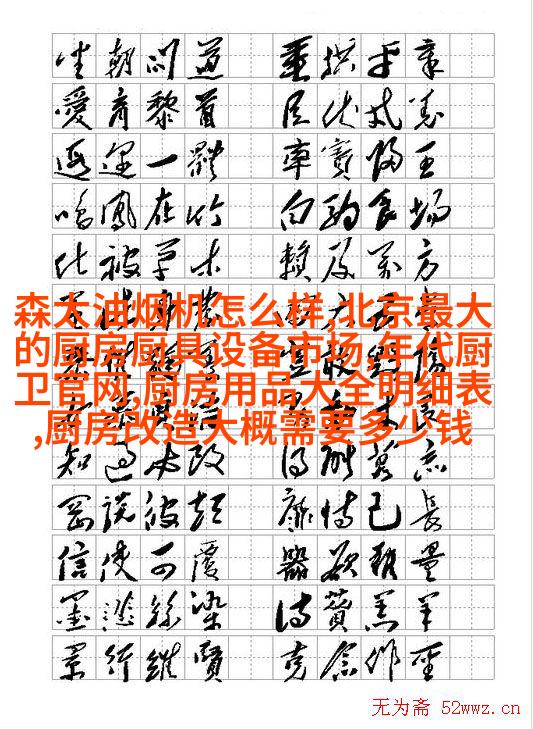 坐朝問道 垂拱平章
愛育黎首 臣伏戎羌
遐邇一體 率賓歸王
鳴鳳在竹 白駒食場
化被草木 賴及萬方
森太油烟机怎么样,北京最大
的厨房厨具设备市场,年代厨
卫官网,厨房用品大全明细表
,厨房改造大概需要多少钱
知過必改 得能莫忘
罔談彼短 靡恃己長
信使可覆 器欲難量
墨悲絲染 詩讚羔羊
景行維賢 克念作聖
无为斋 52wwz.cn